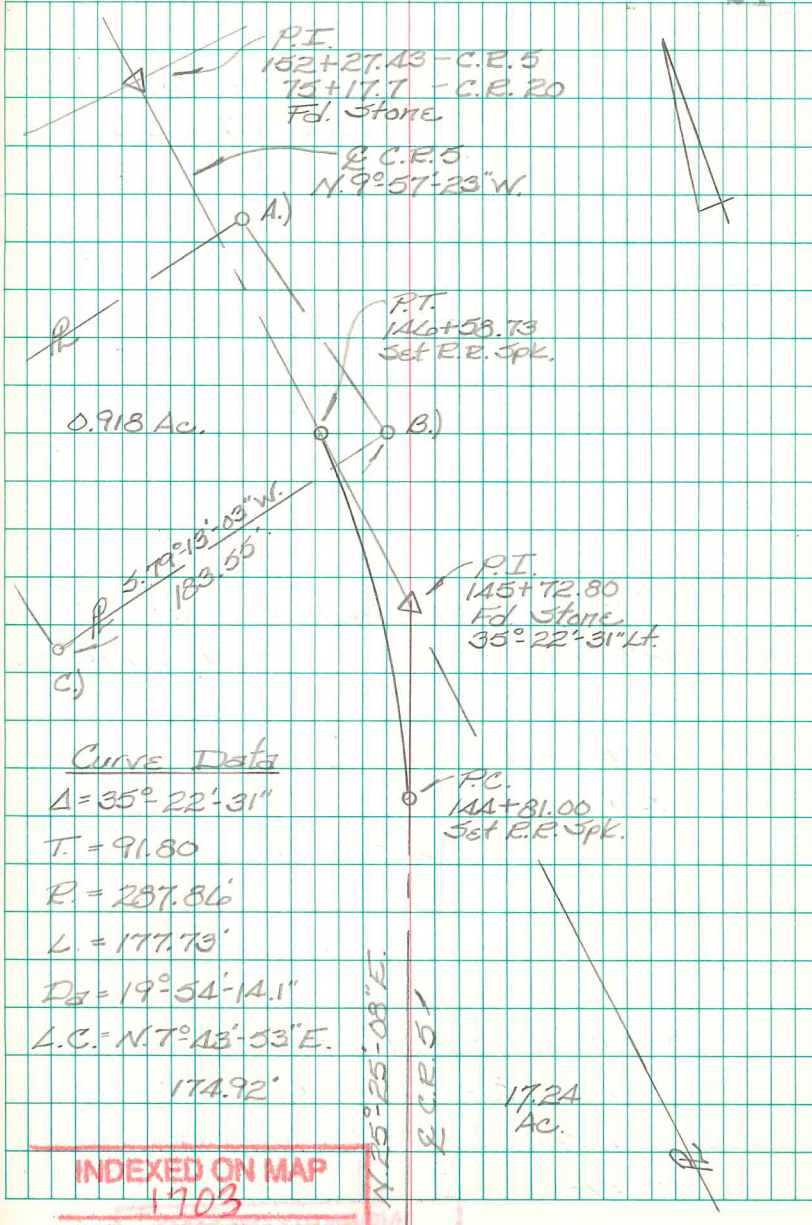 P.I.
152+27.43 - C.R. 5
75+17.7 - C.R. 20
Fd. Stone
℄ C.R. 5
N. 9°-57'-23" W.
A.)
P.T.
146+58.73
Set R.R. Spk.
℄
0.918 Ac.
B.)
S. 79°-13'-03" W.
183.55'
℄
C.)
P.I.
145+72.80
Fd. Stone
35°-22'-31" Lt.
Curve Data
Δ = 35°-22'-31"
T. = 91.80
R. = 287.86'
L. = 177.73'
Da = 19°-54'-14.1"
L.C. = N. 7°-43'-53" E.
174.92'
P.C.
144+81.00
Set R.R. Spk.
N. 25°-25'-08" E.
℄ C.R. 5
17.24
Ac.
INDEXED ON MAP
1703